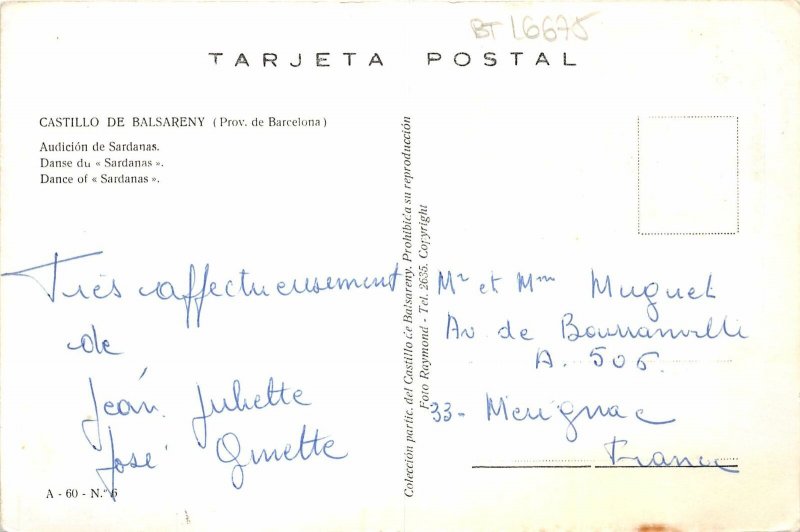 BT 16675
TARJETA POSTAL
CASTILLO DE BALSARENY (Prov. de Barcelona)
Audición de Sardanas.
Danse du « Sardanas ».
Dance of « Sardanas ».
Très affectueusement
de
Jean Juliette
José Ginette
A - 60 - N.º 6
Colección partic. del Castillo de Balsareny. Prohibida su reproducción
Foto Raymond - Tel. 2635. Copyright
Mr et Mme Muguet
Av de
A. 506.
33 - Merignac
France